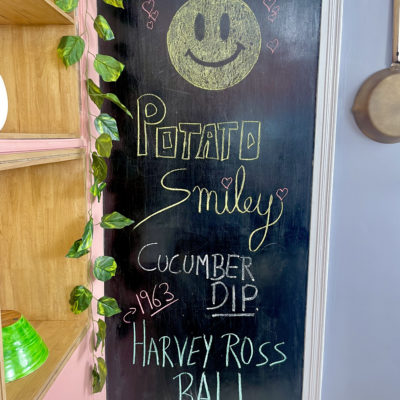 POTATO
Smiley
CUCUMBER
DIP.
1963
HARVEY ROSS
BALL